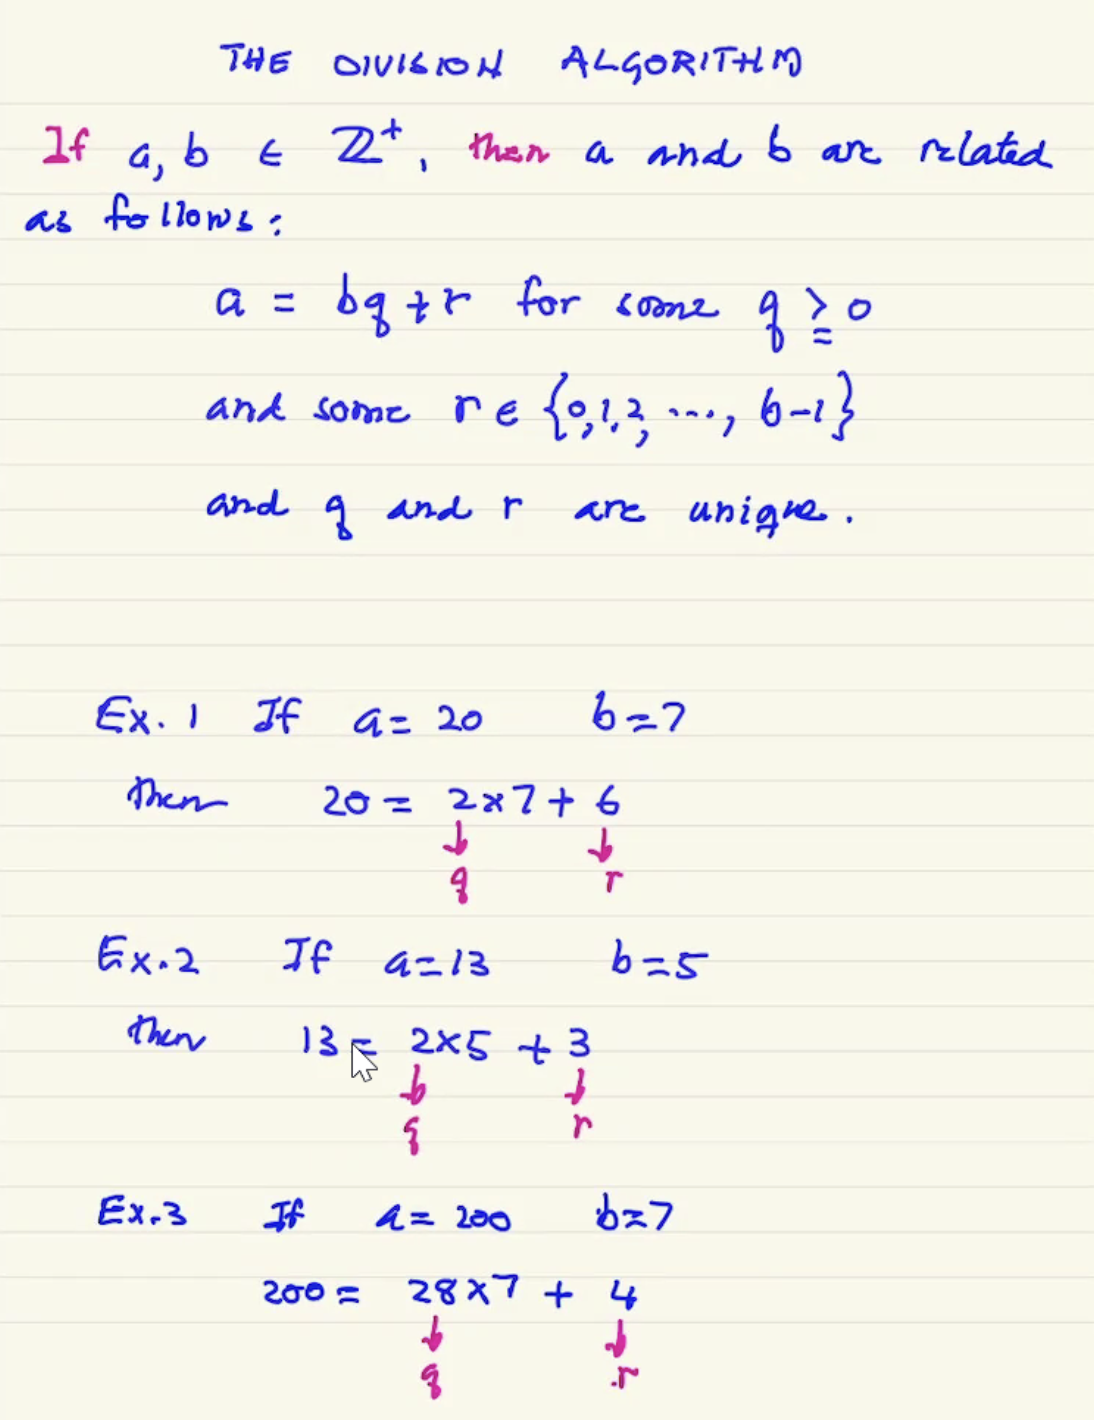 THE DIVISION ALGORITHM
If a, b ∈ ℤ⁺, then a and b are related
as follows:
a = bq + r for some q ≥ 0
and some r ∈ {0, 1, 2, ..., b-1}
and q and r are unique.
Ex. 1 If a = 20 b = 7
then 20 = 2 × 7 + 6
q r
Ex. 2 If a = 13 b = 5
then 13 = 2 × 5 + 3
q r
Ex. 3 If a = 200 b = 7
200 = 28 × 7 + 4
q r